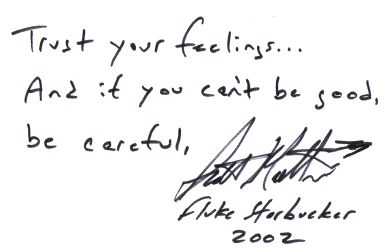 Trust your feelings...
And if you can't be good,
be careful,
Fluke Starbucker
2002